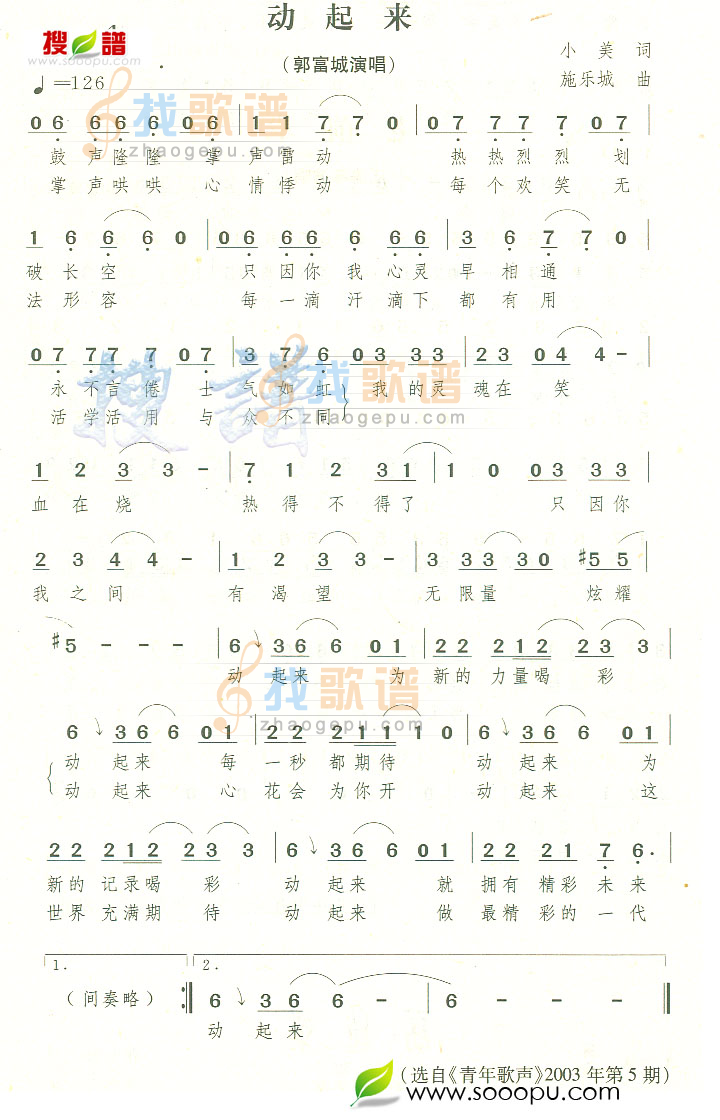 动 起 来
搜谱
www.sooopu.com
小 美 词
(郭富城演唱)
施乐城 曲
♩=126
找歌谱
zhaogepu.com
0 6 6 6 6 0 6 | 1 1 7 7 0 | 0 7 7 7 7 7 0 7 |
鼓 声 隆 隆 掌 声 雷 动 热 热 烈 烈 划
掌 声 哄 哄 心 情 悸 动 每 个 欢 笑 无
1 6 6 6 0 | 0 6 6 6 6 6 6 6 | 3 6 7 7 0 |
破 长 空 只 因 你 我 心 灵 早 相 通
法 形 容 每 一 滴 汗 滴 下 都 有 用
0 7 7 7 7 0 7 | 3 7 6 0 3 3 3 | 2 3 0 4 4 - |
永 不 言 倦 士 气 如 虹 我 的 灵 魂 在 笑
活 学 活 用 与 众 不 同
搜谱
找歌谱
zhaogepu.com
1 2 3 3 - | 7 1 2 3 1 | 1 0 0 3 3 3 |
血 在 烧 热 得 不 得 了 只 因 你
2 3 4 4 - | 1 2 3 3 - | 3 3 3 3 3 0 #5 5 |
我 之 间 有 渴 望 无 限 量 炫 耀
#5 - - - | 6 3 6 6 0 1 | 2 2 2 1 2 2 3 3 |
动 起 来 为 新 的 力 量 喝 彩
找歌谱
zhaogepu.com
6 3 6 6 0 1 | 2 2 2 1 1 1 1 0 | 6 3 6 6 0 1 |
动 起 来 每 一 秒 都 期 待 动 起 来 为
动 起 来 心 花 会 为 你 开 动 起 来 这
2 2 2 1 2 2 3 3 | 6 3 6 6 0 1 | 2 2 2 1 7 6· |
新 的 记 录 喝 彩 动 起 来 就 拥 有 精 彩 未 来
世 界 充 满 期 待 动 起 来 做 最 精 彩 的 一 代
1. 2.
(间奏略) :‖ 6 3 6 6 - - | 6 - - - ‖
动 起 来
(选自《青年歌声》2003 年第 5 期)
www.sooopu.com